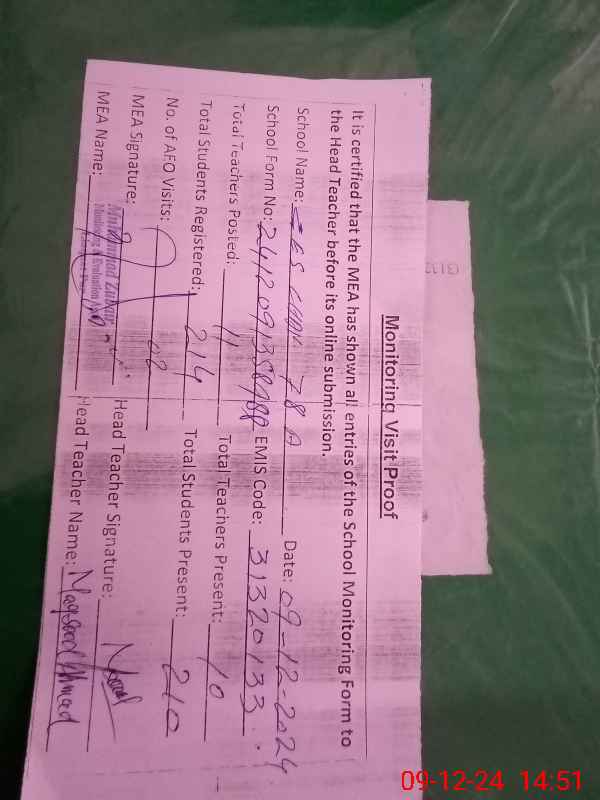 Monitoring Visit Proof
It is certified that the MEA has shown all entries of the School Monitoring Form to
the Head Teacher before its online submission.
School Name: GES CHAK 78 A Date: 09-12-2024
School Form No: EMIS Code: 31320133
Total Teachers Posted: 11 Total Teachers Present: 10
Total Students Registered: 214 Total Students Present: 210
No. of AFO Visits: 02
MEA Signature: Head Teacher Signature:
MEA Name: Head Teacher Name: Maqsood Ahmad
Muhammad
Monitoring & Evaluation
09-12-24 14:51